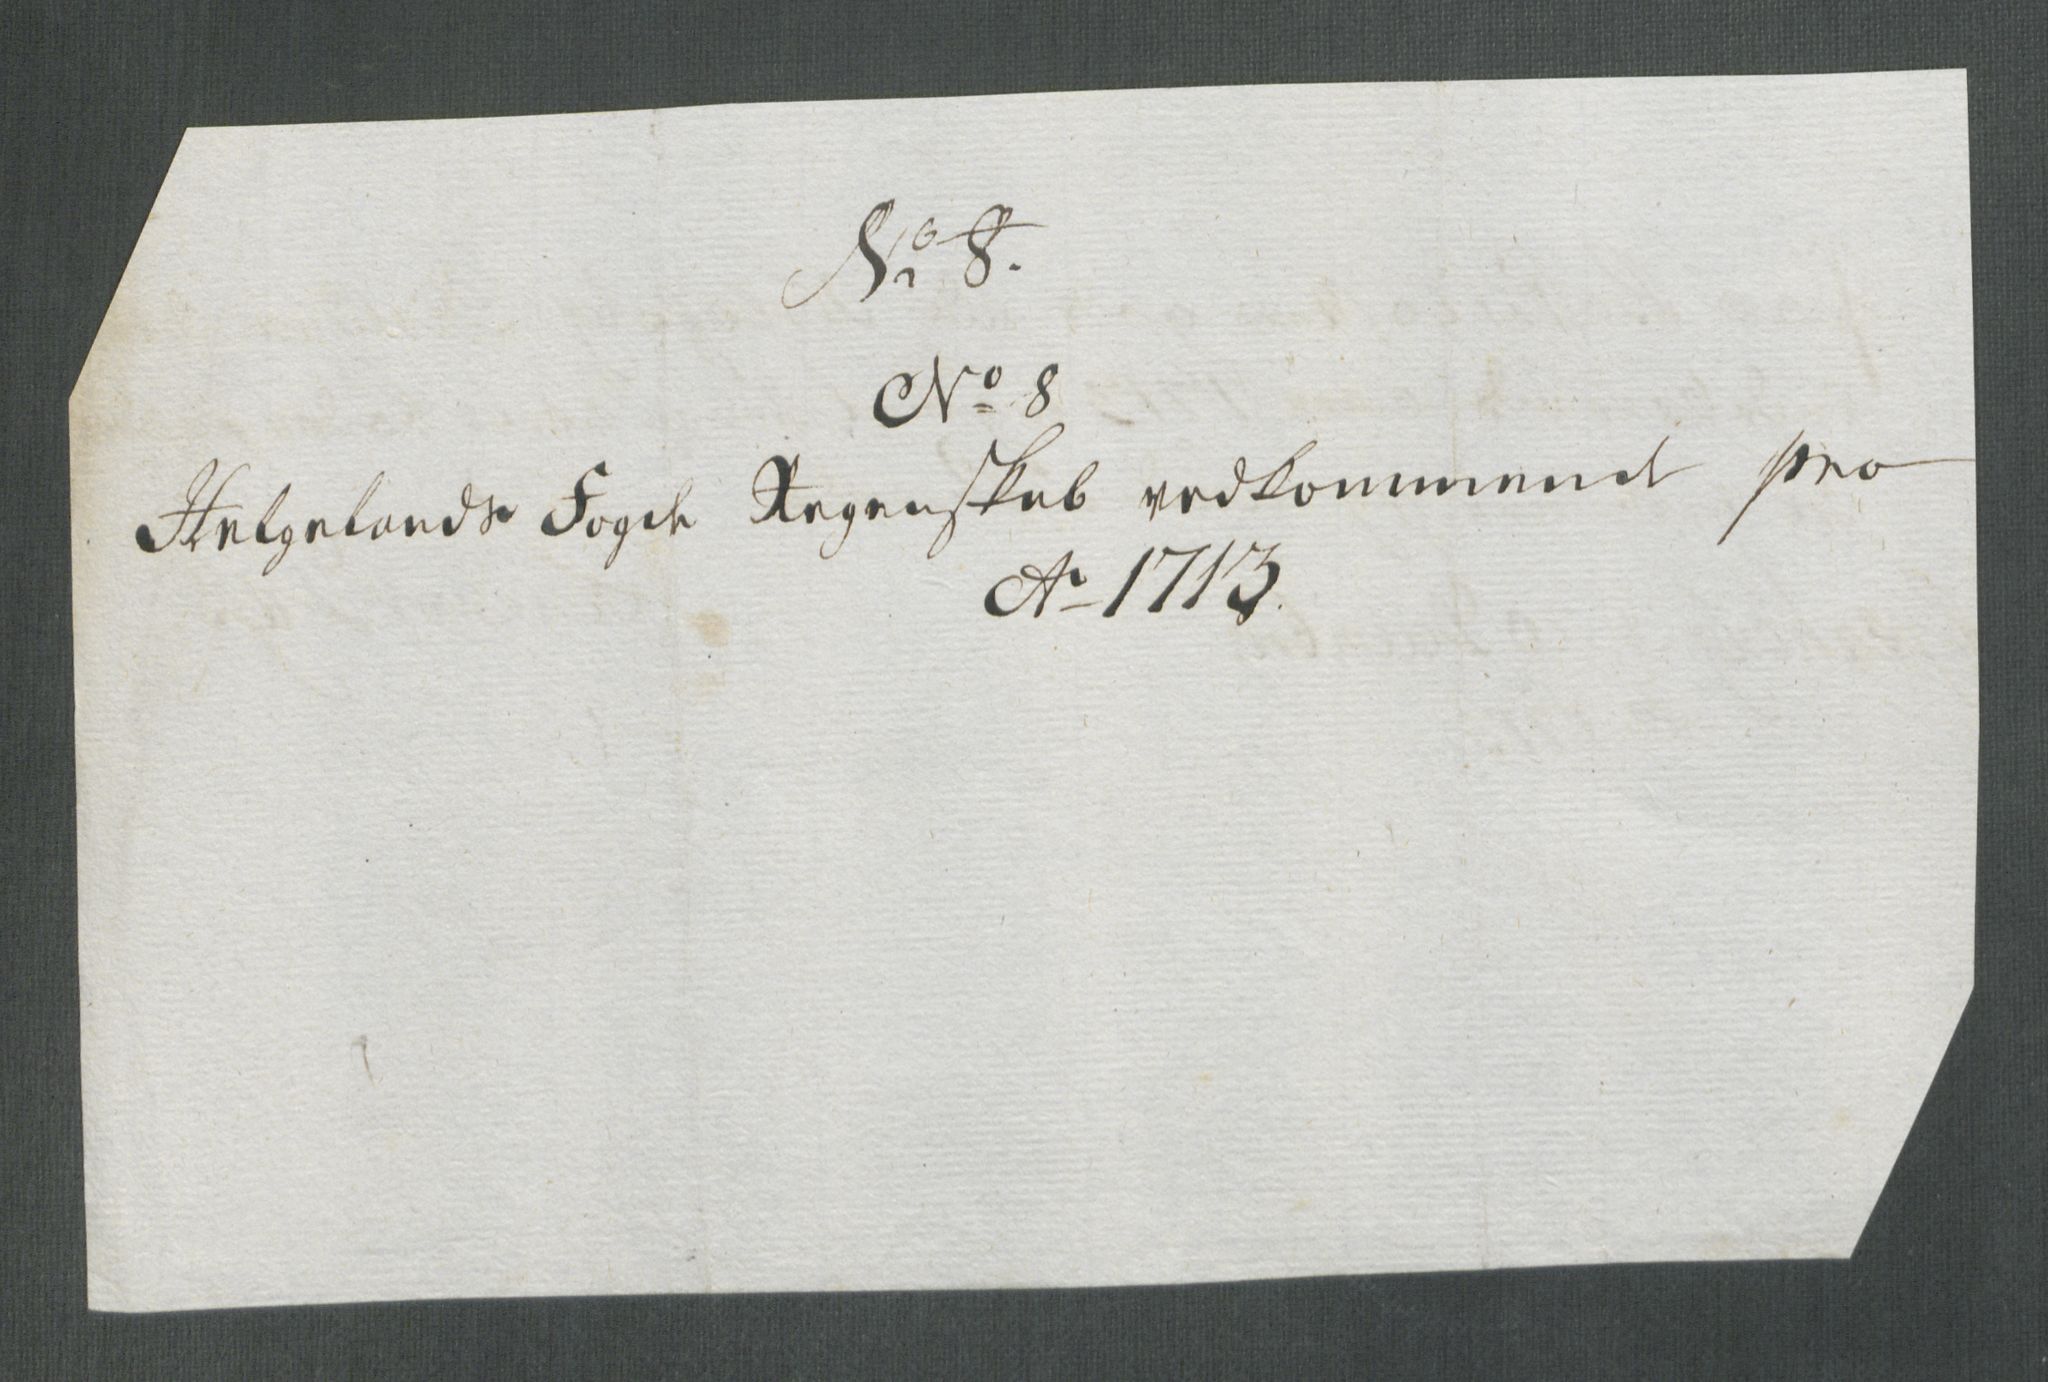 No 8.
No 8
Helgelands Fogde Regenskab vedkommende pro
Ao 1713.